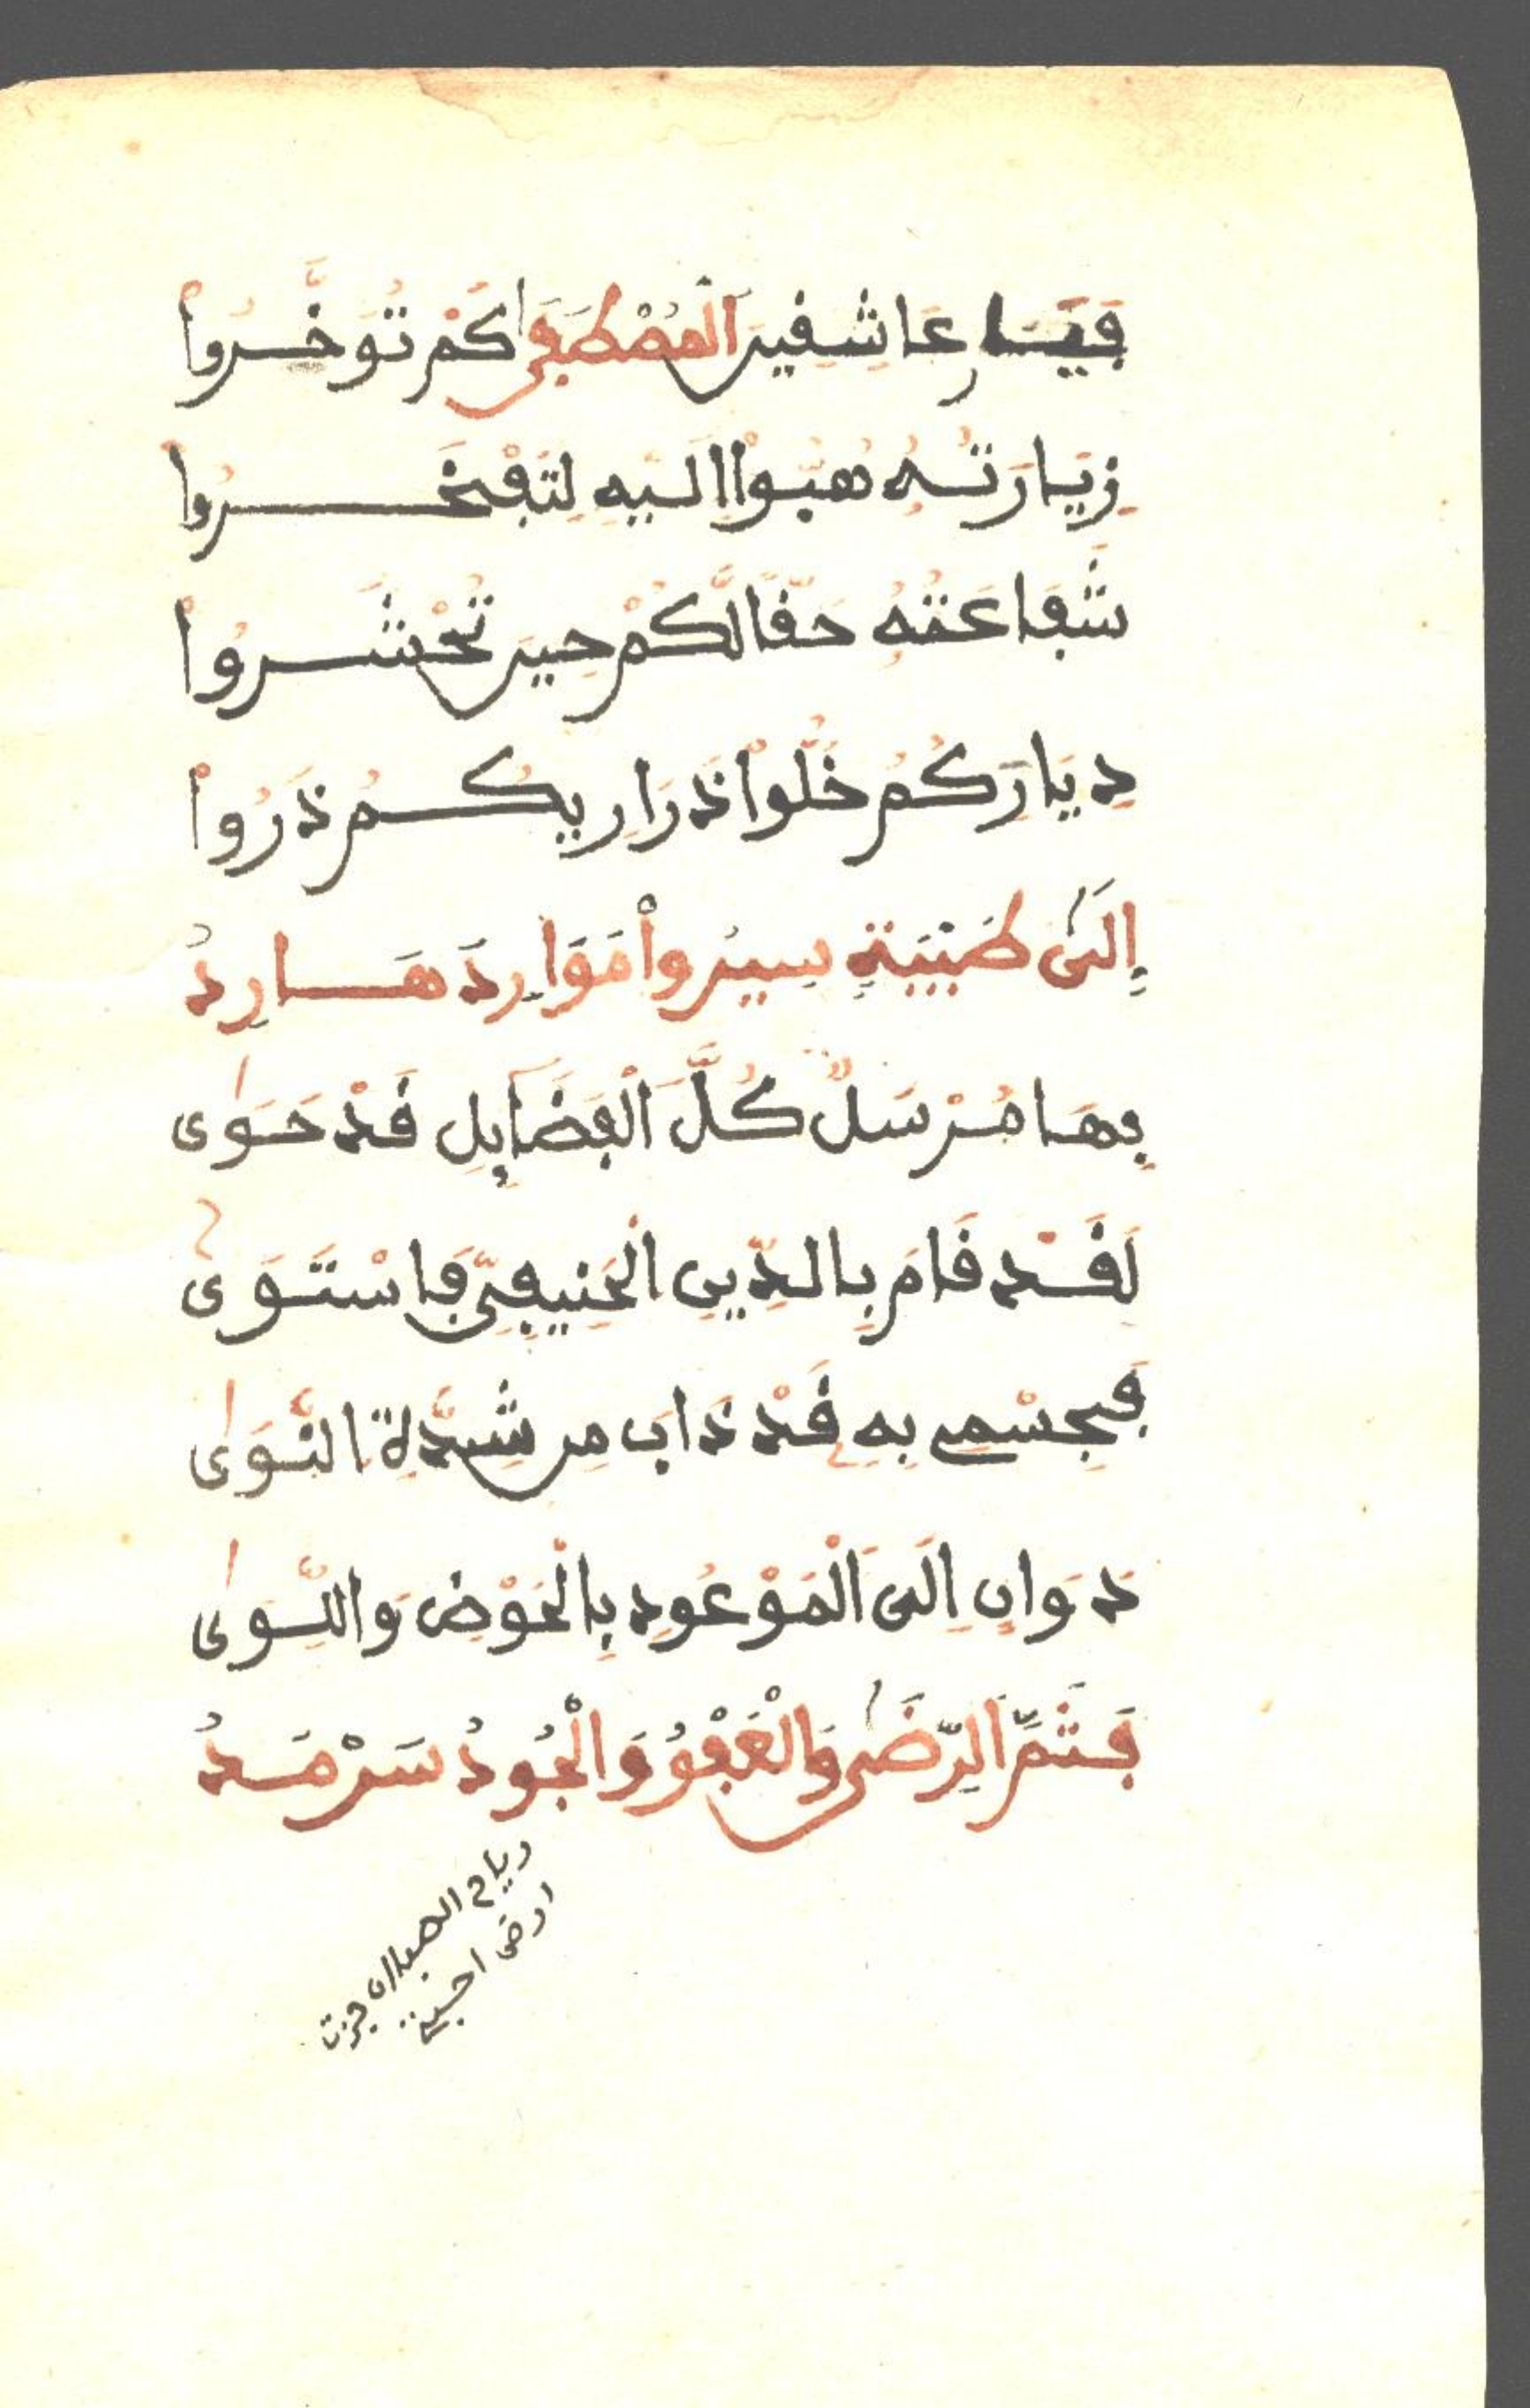 فَيَا عَاشِقِينَ الْمُصْطَفَى كَمْ تُوَخَّرُوا
زِيَارَتُهُ هُبُّوا إِلَيْهِ لِتَفْخَرُوا
شَفَاعَتُهُ حَقًّا لَكُمْ حِينَ تُحْشَرُوا
دِيَارَكُمْ خَلُّوا ذَرَارِيكُمْ ذَرُوا
إِلَى طَيْبَةٍ سِيرُوا مَوَارِدَهَا رِدُ
بِهَا مُرْسَلٌ كُلَّ الْفَضَايِلِ قَدْ حَوَى
لَقَدْ قَامَ بِالدِّينِ الْحَنِيفِيِّ فَاسْتَوَى
فَجِسْمِي بِهِ قَدْ ذَابَ مِن شِدَّةِ النَّوَى
دَوَانِ إِلَى الْمَوْعُودِ بِالْحَوْضِ وَاللِّوَى
فَثَمَّ الرِّضَى وَالْعَفْوُ وَالْجُودُ سَرْمَدُ
رياح الصبا ان جزت
ارض احبتي